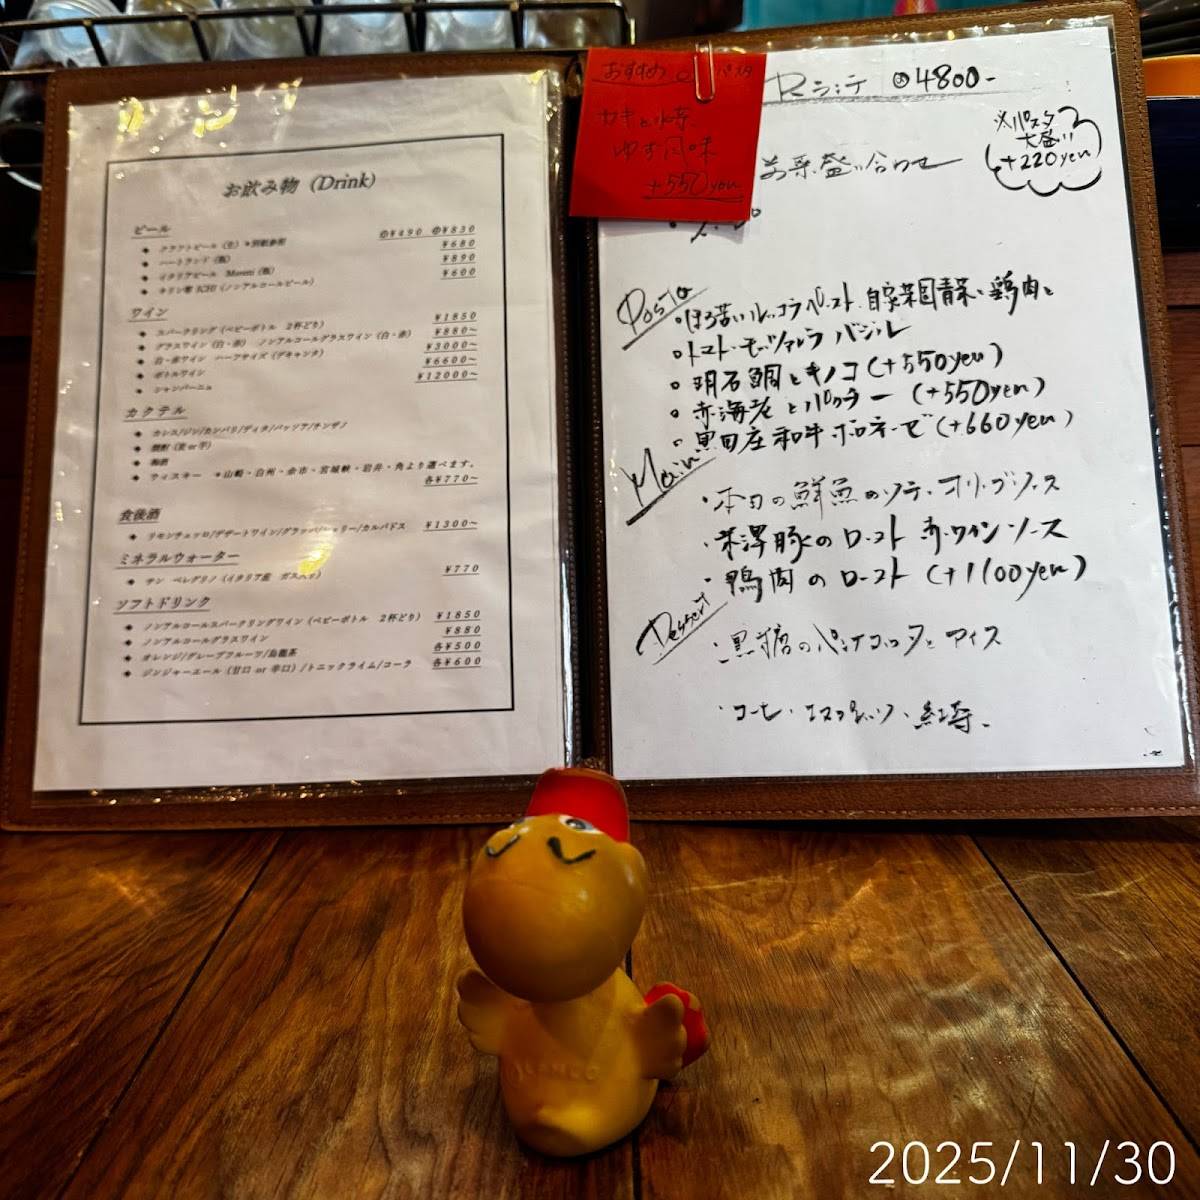 お飲み物 (Drink)
ビール
クラフトビール (生) *別紙参照 ㊥¥490 ㊥¥830
ハートランド (瓶) ¥680
イタリアビール Moretti (瓶) ¥890
キリン零 ICHI (ノンアルコールビール) ¥600
ワイン
スパークリング (ベビーボトル 2杯どり) ¥1850
グラスワイン (白・赤) ノンアルコールグラスワイン (白・赤) ¥880~
白・赤ワイン ハーフサイズ (デキャンタ) ¥3000~
ボトルワイン ¥6600~
シャンパーニュ ¥12000~
カクテル
カシス/ジン/カンパリ/ディタ/パッソア/チンザノ
焼酎 (麦 or 芋)
梅酒
ウィスキー *山崎・白州・余市・宮城峡・岩井・角より選べます。
各¥770~
食後酒
リモンチェッロ/デザートワイン/グラッパ/シェリー/カルバドス ¥1300~
ミネラルウォーター
サン ペレグリノ (イタリア産 ガス入り) ¥770
ソフトドリンク
ノンアルコールスパークリングワイン (ベビーボトル 2杯どり) ¥1850
ノンアルコールグラスワイン ¥880
オレンジ/グレープフルーツ/烏龍茶 各¥500
ジンジャーエール (甘口 or 辛口) /トニックライム/コーラ 各¥600
おすすめ パスタ
カキと
ゆず風味
+550yen
4800-
※パスタ
大盛り
+220yen
前菜盛り合わせ
Pasta
・ほろ苦いルッコラペースト、自家菜園青菜と鶏肉と
・トマト・モッツァレラ バジル
・明石鯛とキノコ (+550yen)
・赤海老とパクチー (+550yen)
・黒田庄和牛ボロネーゼ (+660yen)
Main
・本日の鮮魚のソテー オリーブソース
・米澤豚のロースト 赤ワインソース
・鴨肉のロースト (+1100yen)
Dessert
・黒糖のパンナコッタとアイス
・コーヒー・エスプレッソ・紅茶
2025/11/30